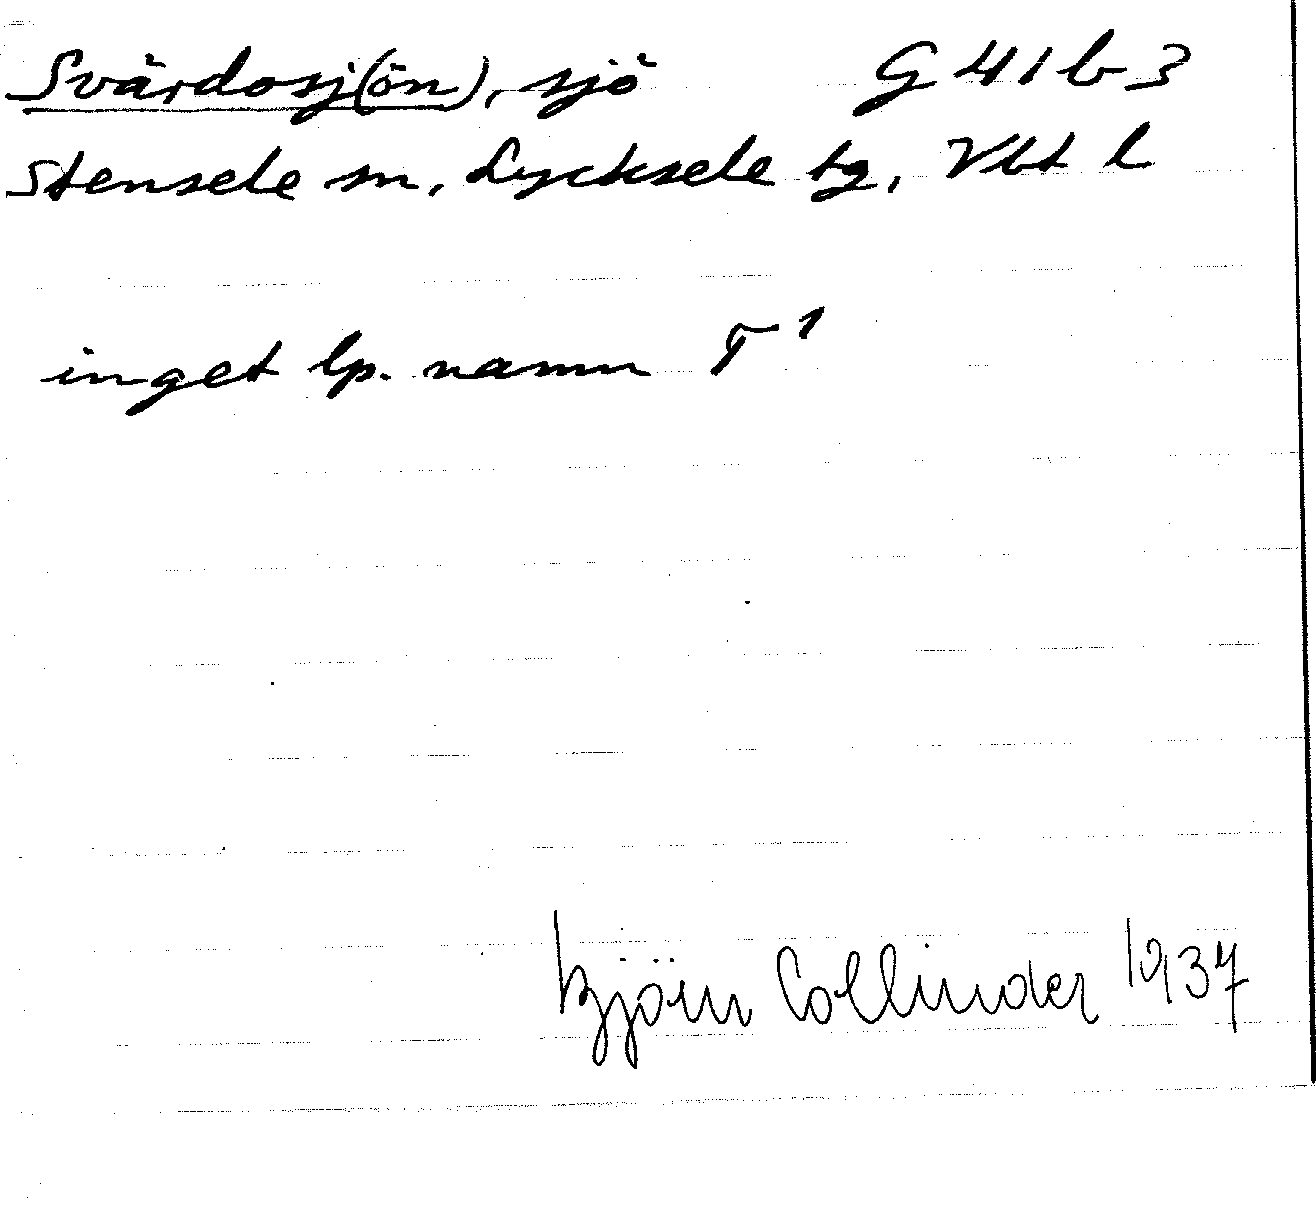 Svärdosj(ön), sjö G41b3
Stensele sn, Lycksele tg, Vbt l
inget lp. namn T¹
Björn Collinder 1937